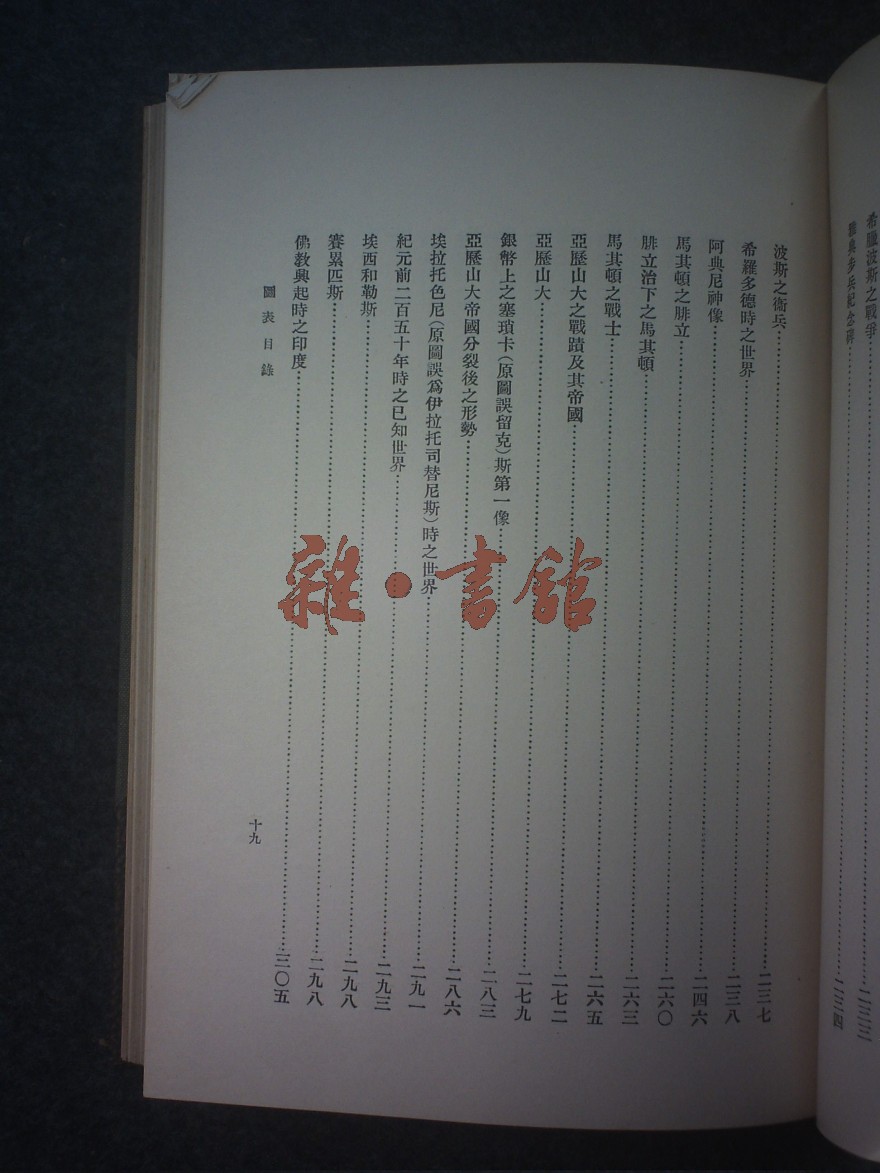 希臘波斯之戰爭……二三三
雅典步兵紀念碑……二三四
波斯之衞兵……二三七
希羅多德時之世界……二三八
阿典尼神像……二四六
馬其頓之腓立……二六〇
腓立治下之馬其頓……二六三
馬其頓之戰士……二六五
亞歷山大之戰蹟及其帝國……二七二
亞歷山大……二七九
銀幣上之塞瑣卡(原圖誤留克)斯第一像……二八三
亞歷山大帝國分裂後之形勢……二八六
埃拉托色尼(原圖誤爲伊拉托司替尼斯)時之世界……二九一
紀元前二百五十年時之已知世界……二九三
埃西和勒斯……二九八
賽累匹斯……二九八
佛教興起時之印度……三〇五
圖表目錄
十九
雜·書館